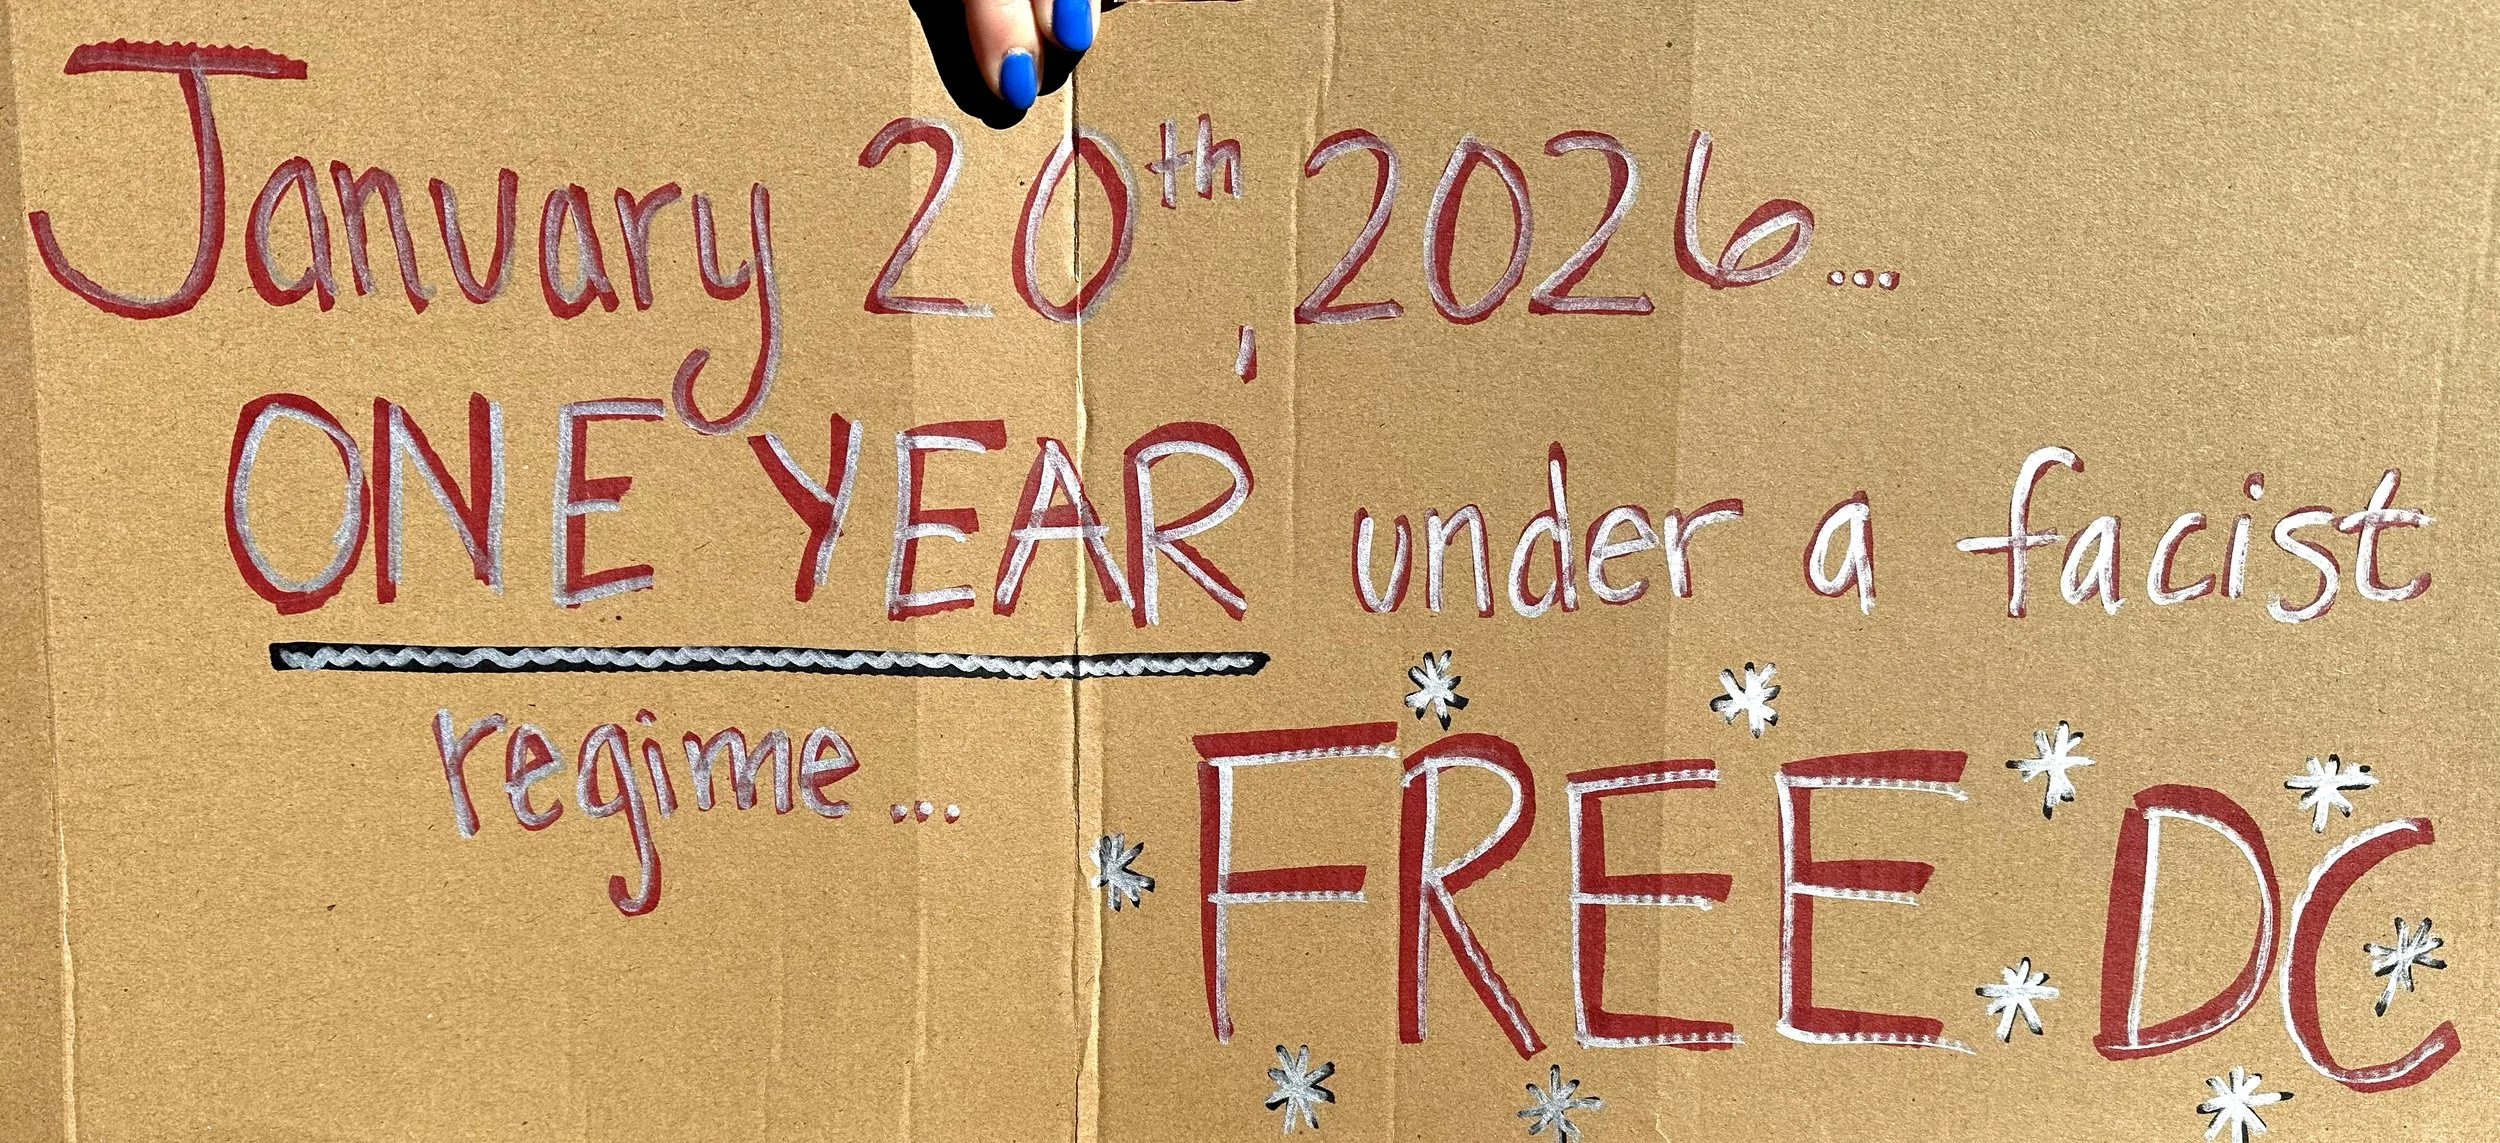 January 20th, 2026...
ONE YEAR, under a facist
regime...
FREE DC